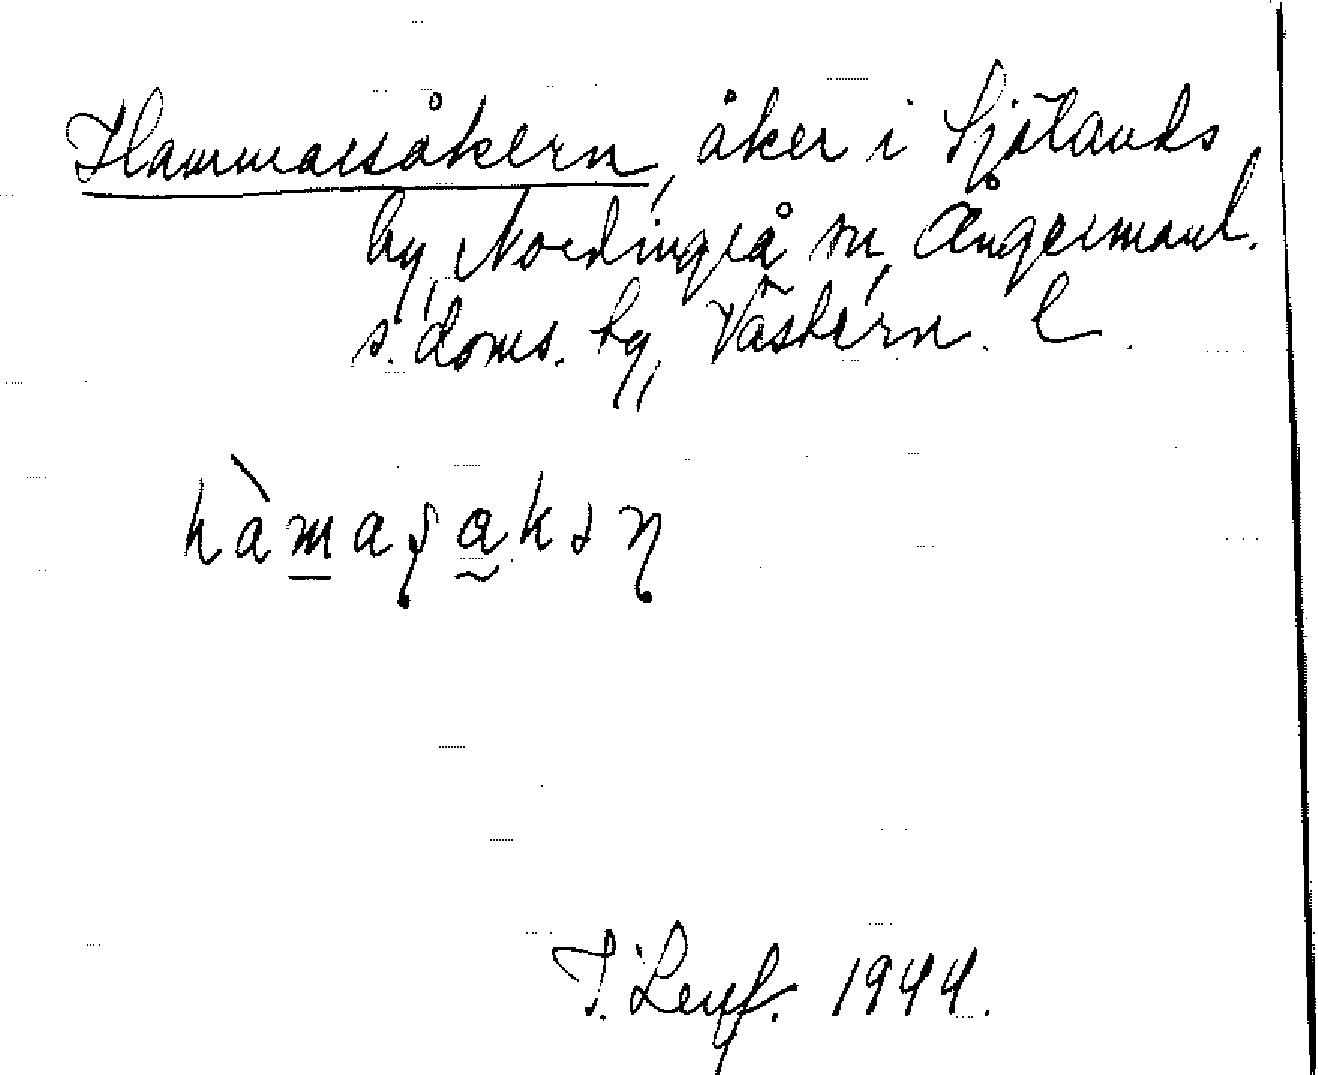 Hammarsåkern, åker i Sjölands
by, Nordingrå sn, Ångermanl.
s. doms. hg, Västern. l.
hàmaṣakən
T. Leuf. 1944.